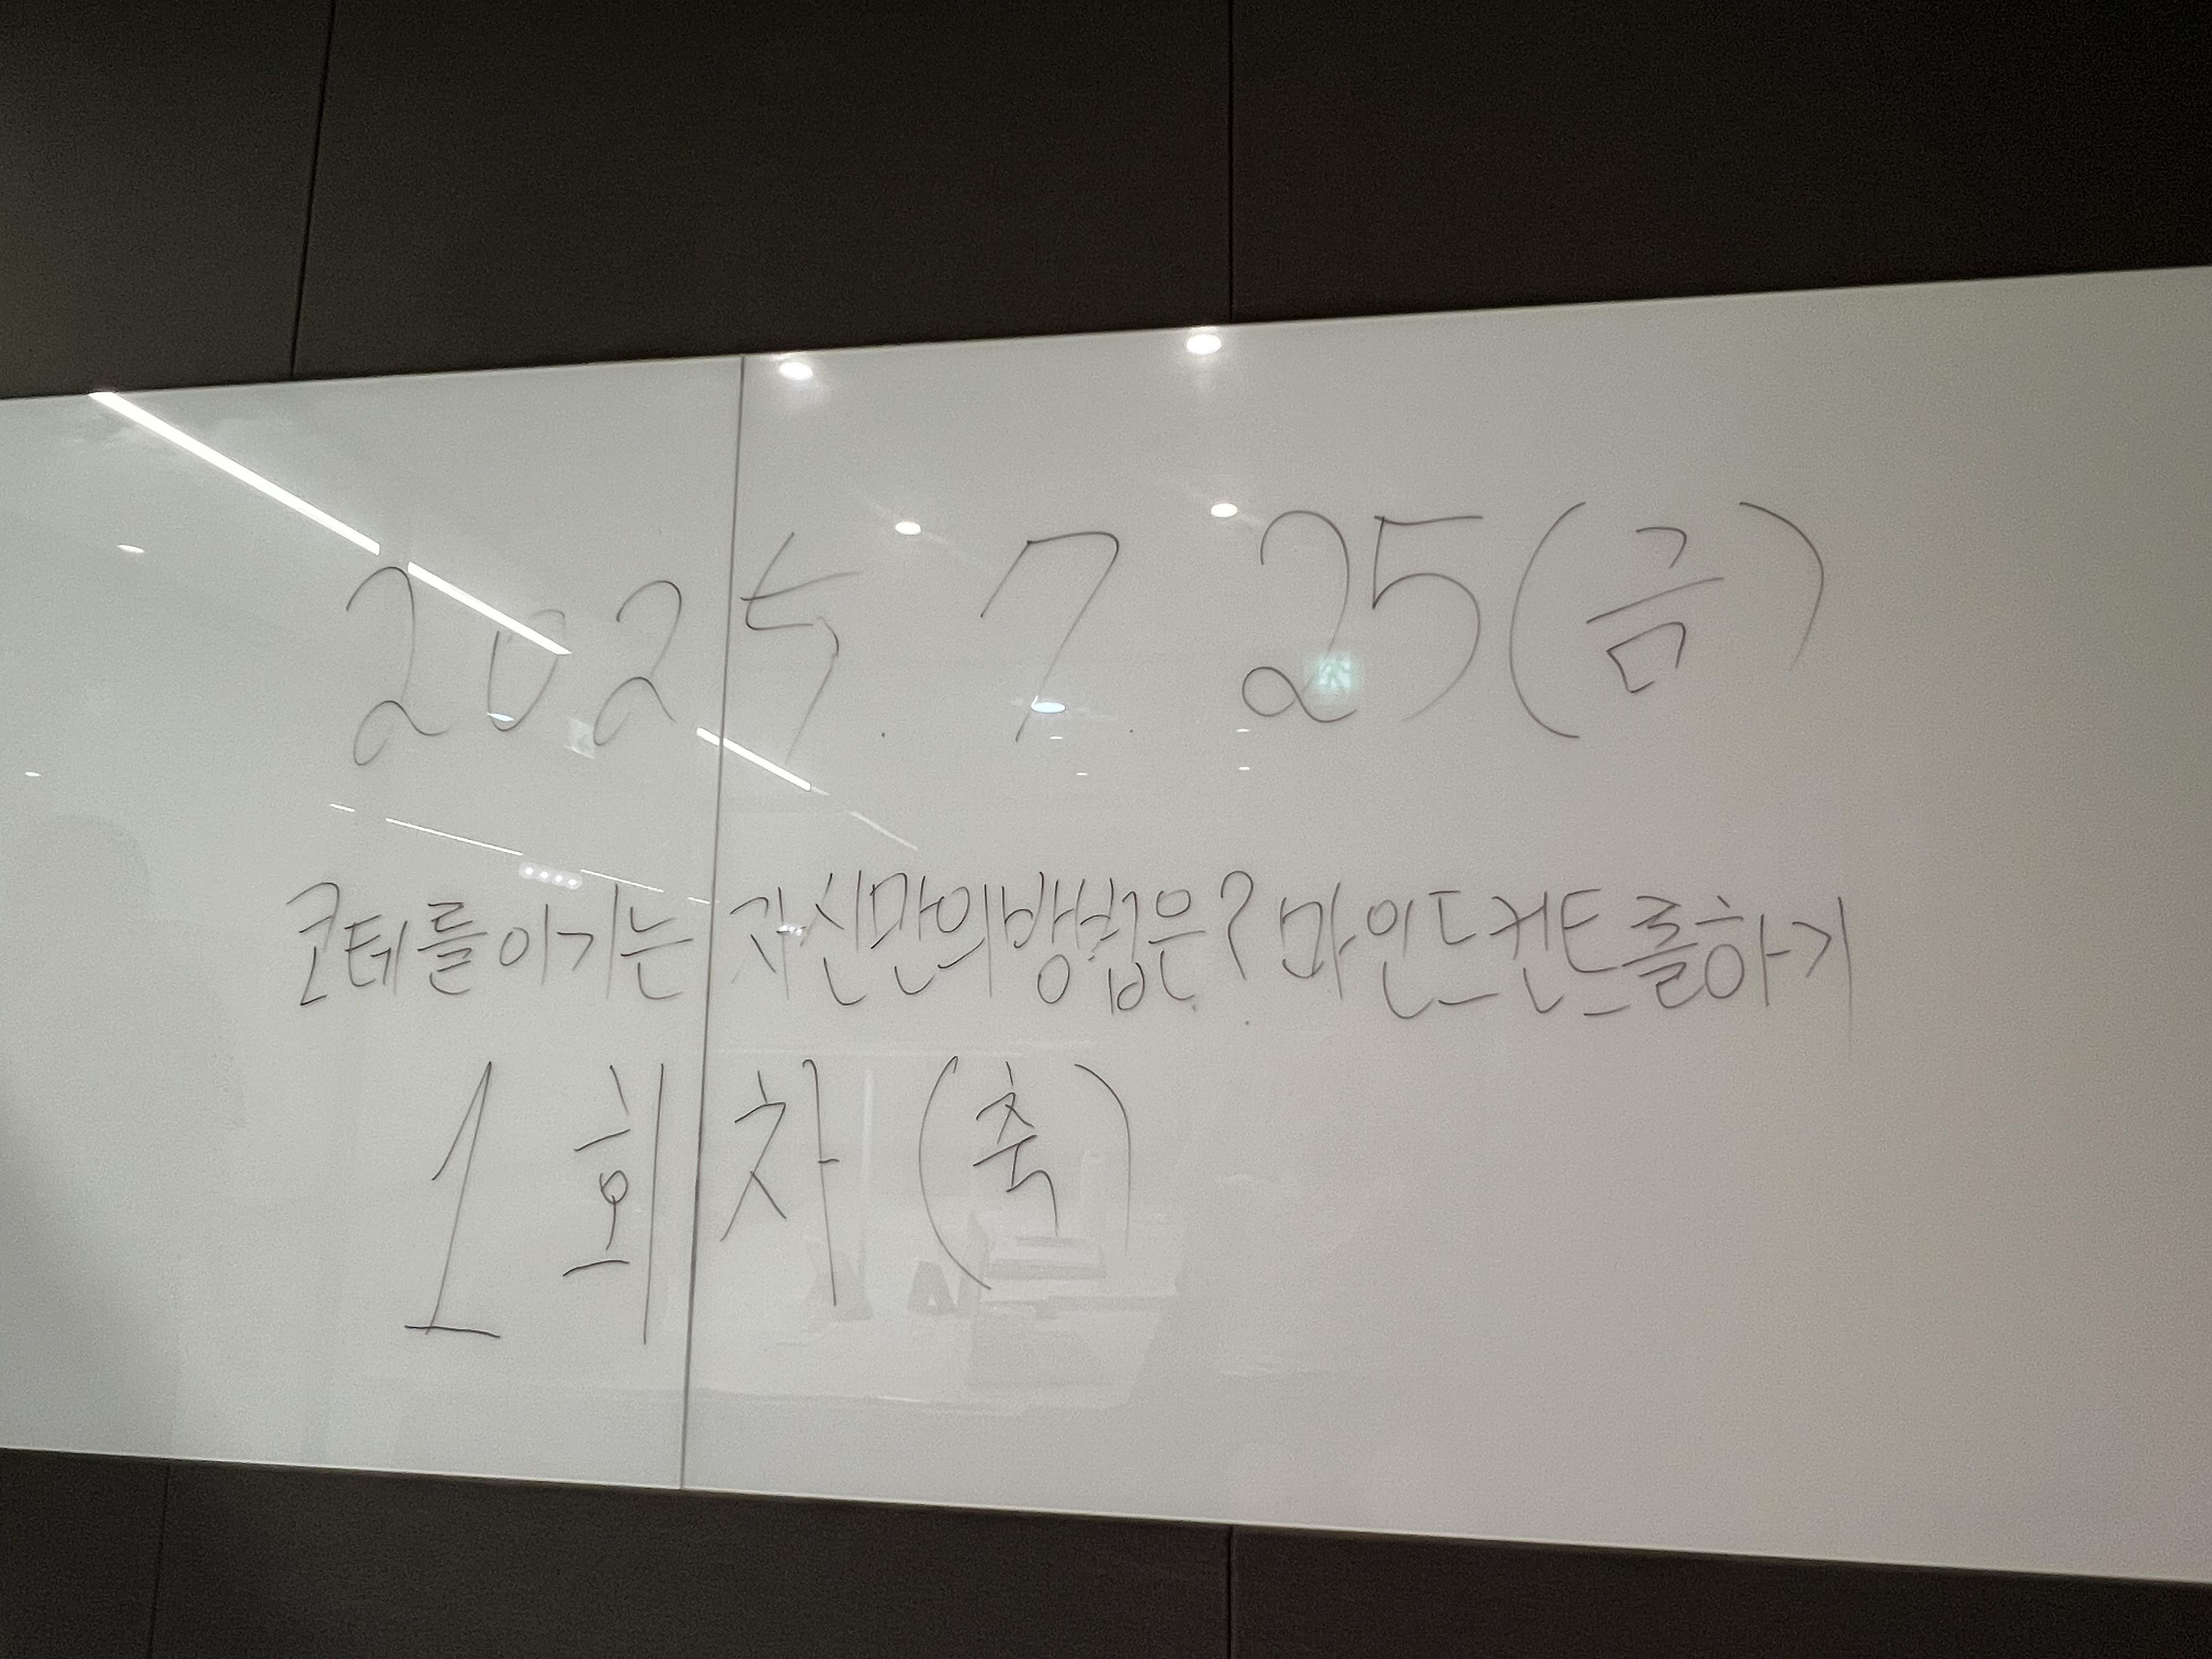 2025. 7. 25(금)
코테를이기는 자신만의방법은? 마인드컨트롤하기
1회차 (축)